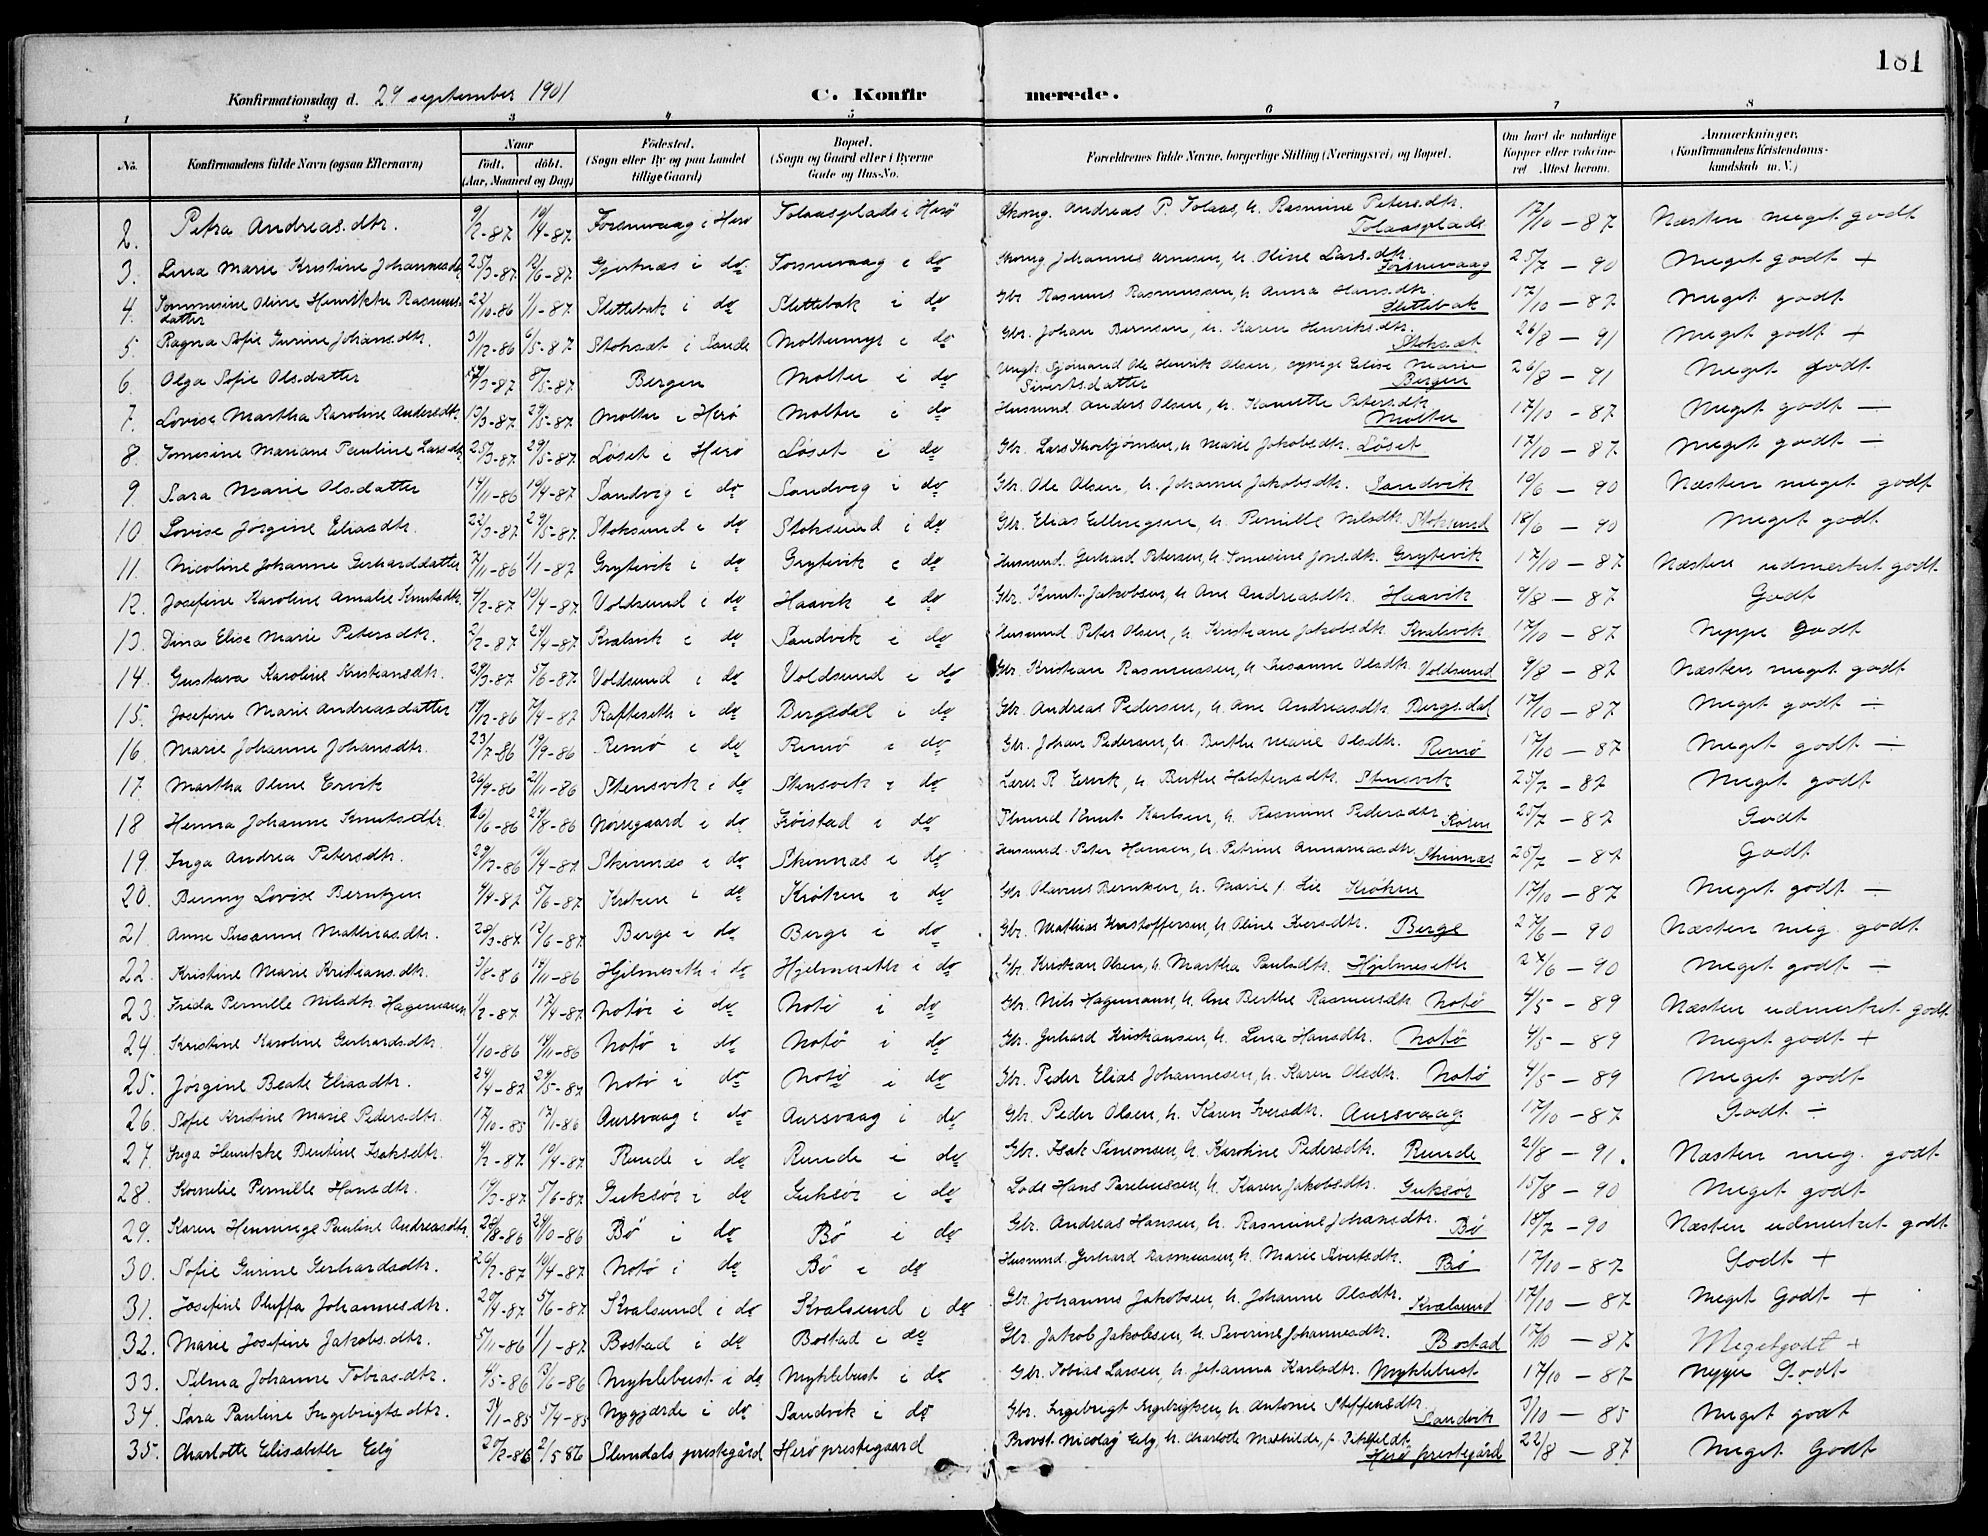 181
Konfirmationsdag d. 29 september 1901 C. Konfirmerede.
1 2 3 4 5 6 7 8
No. Konfirmandens fulde Navn (ogsaa Efternavn) Naar født. døbt. (Aar, Maaned og Dag) Fødested. (Sogn eller By og paa Landet tillige Gaard) Bopæl. (Sogn og Gaard eller i Byerne Gade og Hus-No. Forældrenes fulde Navne, borgerlige Stilling (Næringsvei) og Bopæl. Om havt de naturlige Kopper eller vaccineret. Attest herom. Anmærkninger. (Konfirmandens Kristendomskundskab m. V.)
2. Petra Andreas.dtr. 9/2-87 10/4-87 Torsnvaag i Herø Tolaasplads i Herø Andreas P. Tolaas, h. Rasmine Petersdtr. Tolaasplads 17/10 - 87 Næsten meget godt
3. Lina Marie Kristine Johannesdtr 25/3-87 2/6-87 Gjertnæs i do Torsnevaag i do Johannes Arnesen, h. Oline Larsdtr. Torsnevaag 25/7 - 90 Meget godt +
4. Tommesine Oline Henrikke Rasmusdatter 22/10-86 1/1-87 Slettebak i do Slettebak i do Gbr. Rasmus Rasmussen, h. Anna Hansdtr. Slettebak 17/10 - 87 Meget godt
5 Ragna Sofie Gurine Johansdtr. 31/12-86 6/5-87 Stoksæt i Sande Moltemyr i do Gbr. Johan Berntsen, h. Karen Henriksdtr. Stoksæt 26/8 - 91 Meget godt +
6. Olga Sofie Olsdatter 8/5-87 Bergen Molter i do Ungk. Sjømand Ole Henrik Olsen, og pige Elise Marie Sivertsdatter Bergen 26/8 - 91 Meget godt
7. Lovise Martha Karoline Andersdtr. 13/3-87 29/5-87 Molter i Herø Molter i do Husmd Anders Olsen, h. Petersdtr. Molter 17/10 - 87 Meget godt -
8. Tomesine Mariane Pauline Larsdtr 25/3-87 29/5-87 Løset i Herø Løset i do Gbr. Lars, h. Marie Jakobsdtr. Løset 17/10 - 87 Meget godt -
9 Sara Marie Olsdatter 14/11-86 10/4-87 Sandvig i do Sandvig i do Gbr. Ole Olsen, h. Johanne Jakobsdtr. Sandvik 19/6 - 90 Næsten meget godt
10 Lovise Jørgine Eliasdtr. 22/3-87 29/5-87 Stoksund i do Stoksund i do Gbr. Elias Ellingsen, h. Pernille Nilsdtr. Stoksund 18/6 - 90 Meget godt
11. Nicoline Johanne Gerharddatter 7/11-86 1/1-87 Grytevik i do Grytevik i do Husmd. Gerhard Petersen, h. Tomesine Jonsdtr. Grytevik 17/10 - 87 Næsten udmerket godt
12. Josefine Karoline Amalie Knutsdtr. 4/2-87 10/4-87 Voldsund i do Haavik i do Gbr. Knut Jakobsen, h. Ane Andreasdtr. Haavik 9/8 - 87 Godt
13. Dina Elise Marie Petersdtr. 2/2-87 24/4-87 Kvalsvik i do Sandvik i do Husmd Peter Olsen, h. Kristiane Jakobsdtr. Kvalsvik 17/10 - 87 Neppe Godt
14. Gustava Karoline Kristiansdtr. 29/3-87 5/6-87 Voldsund i do Voldsund i do Gbr. Kristian Rasmussen, h. Susanne Olsdtr. Voldsund 9/8 - 87 Næsten meget godt
15. Josefine Marie Andreasdatter 19/12-86 7/4-87 Rafteseth i do Bergsdal i do Gbr. Andreas Pedersen, h. Ane Andreasdtr. Bergsdal 17/10 - 87 Meget godt -
16 Marie Johanne Johansdtr. 23/7-86 19/9-86 Remø i do Remø i do Gbr. Johan Pedersen, h. Berthe Marie Olsdtr. Remø 17/10 - 87 Meget godt -
17. Martha Oline Ervik 26/9-86 21/11-86 Stensvik i do Stensvik i do Lærer R Ervik, h. Berthe Holstensdtr. Stensvik 25/7 - 87 Meget godt
18 Henna Johanne Knutsdtr. 26/6-86 29/8-86 Norregaard i do Frøistad i do Knut Karlsen, h. Rasmine Pedersdtr. 25/7 - 87 Godt
19. Inga Andrea Petersdtr. 29/12-86 10/4-87. Skinnæs i do Skinnæs i do Husmd. Peter Hansen, h. Petrine Annaniasdtr. Skinnæs 25/7 - 87 Godt
20. Benny Lovise Berntzen 4/4-87 5/6-87 Kroken i do Krøken i do Gbr Olavus Berntsen, h. Marie f. Lie Krøken 17/10 - 87 Meget godt -
21. Anne Susanne Mathiasdtr. 28/3-87 12/6-87. Berge i do Berge i do Gbr. Mathias Kristoffersen, h. Oline Iversdtr. Berge 27/6 - 90 Næsten meg. godt
22. Kristine Marie Kristiansdtr. 3/8-86 14/11-86 Hjelmeseth i do Hjelmeseth i do Gbr. Kristian Olsen, h. Martha Paulsdtr. Hjelmeseth 27/6 - 90 Meget godt -
23. Frida Pernille Nilsdtr. Hagemann 1/2-87 17/4-87 Notø i do Notø i do Gbr. Nils Hagemann, h. Ane Berthe Rasmusdtr Notø 4/5 - 89 Næsten udmerket godt
24. Kristine Karoline Gerhardsdtr. 1/10-86 14/11-86 Notø i do Notø i do Gbr. Gerhard Kristiansen, h. Lina Hansdtr. Notø 4/5 - 89 Meget godt +
25. Jørgine Beate Eliasdtr. 24/4-87 29/5-87 Notø i do Notø i do Gbr. Peder Elias Johannesen, h. Karen Olsdtr. Notø 4/5 - 89 Meget godt
26. Sofie Kristine Marie Pedersdtr. 17/10-85 17/1-86 Aursvaag i do Aursvaag i do Gbr. Peder Olsen, h. Karen Iversdtr. Aursvaag 17/10 - 87 Godt ÷
27. Inga Henrikke Bentine Isaksdtr. 4/2-87. 10/4-87. Runde i do Runde i do Gbr. Isak Simonsen, h. Karoline Pedersdtr. Runde 21/8 - 91. Næsten meg. godt
28. Kornelie Pernille Hansdtr. 19/3-87 5/6-87 Goksør i do Goksør i do Lods Hans Pareliussen, h. Karen Jakobsdtr. Goksør 15/8 - 90 Meget godt
29. Karen Henninge Pauline Andreasdtr. 28/8-86 24/10-86 Bø i do Bø i do Gbr. Andreas Hansen, h. Rasmine Johansdtr. Bø 18/7 - 90 Næsten udmerket godt
30. Sofie Gurine Gerhardsdtr. 26/2-87 10/4-87. Notø i do Bø i do Husmd Gerhard Rasmussen, h. Marie Sivertsdtr. Bø 17/10 - 87 Godt +
31. Josefine Oluffa Johannesdtr. 20/4-87 5/6-87 Kvalsund i do Kvalsund i do Gbr. Johannes Jakobsen, h. Johanne Olsdtr. Kvalsund 17/10 - 87 Meget Godt +
32. Marie Josefine Jakobsdtr. 5/11-86 1/1-87 Bostad i do Bostad i do Gbr. Jakob Jakobsen, h. Severine Johannesdtr. Bostad 17/10 - 87 Meget godt +
33. Selma Johanne Tobiasdtr. 4/5-86 3/6-86 Myklebust i do Myklebust i do Gbr. Tobias Larsen, h. Johanna Karlsdtr. Myklebust 17/10 - 87 Neppe Godt
34. Sara Pauline Ingebrigtsdtr. 31/1-85 5/4-85 Nygjærde i do Sandvik i do Gbr. Ingebrigt Ingebrigtsen, h. Antonie Steffensdtr. Sandvik 3/10 - 85 Meget godt
35. Charlotte Elisabeth Eeg 2/5 86 prestegård Herø prestegaard Provst. Nicolay Eeg, h. Charlotte Mathilde, f. Herø prestegård 22/8 - 87 Meget Godt